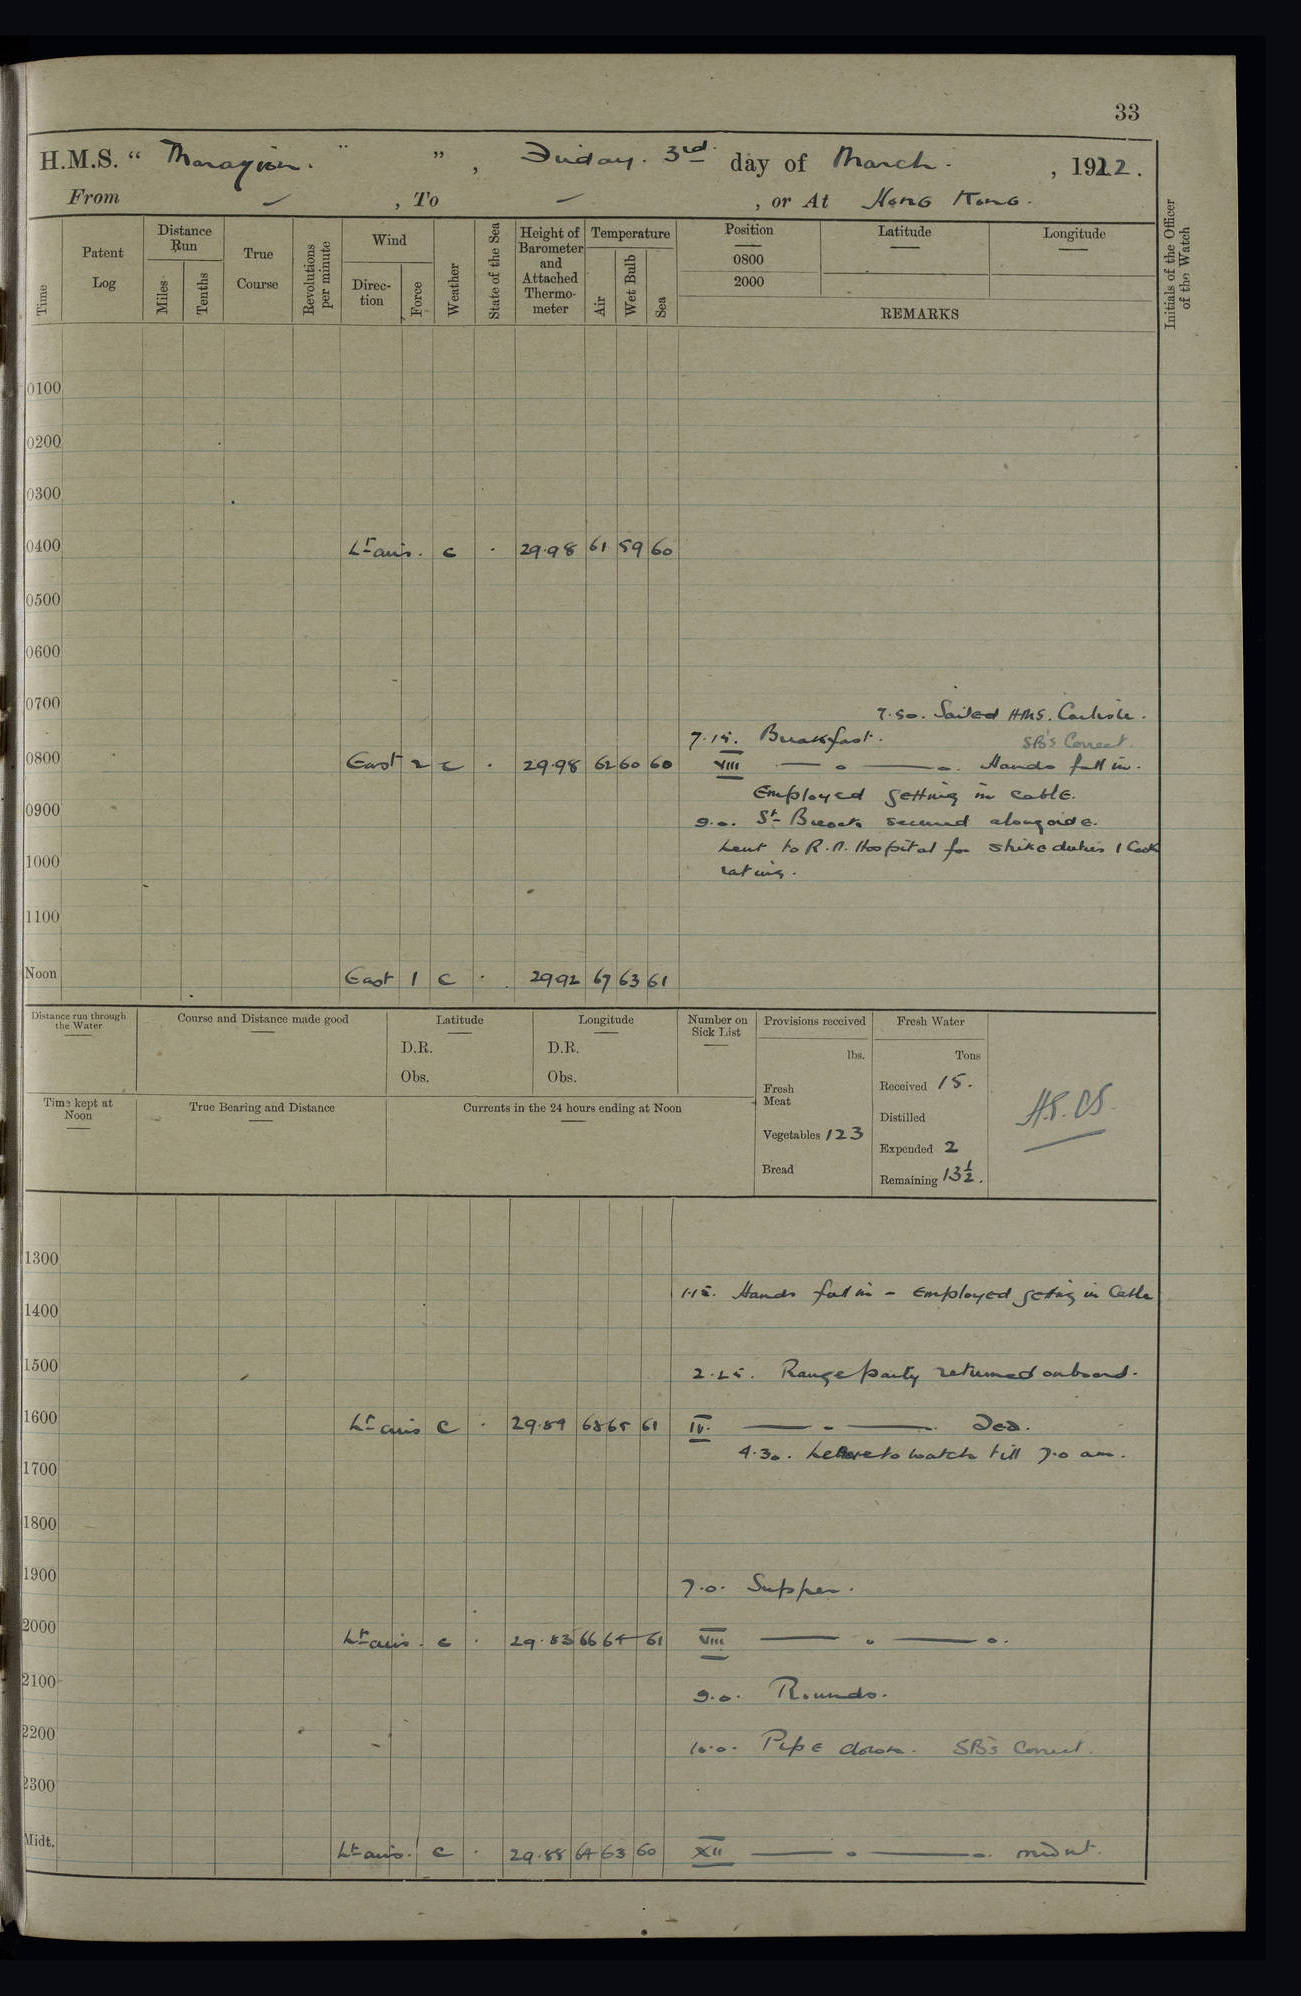 33
H.M.S. “ Marazion. ” , Friday. 3rd day of March. , 1922.
From — , To — , or At Hong Kong.
Time
Patent Log
Distance Run
Miles
Tenths
True Course
Revolutions per minute
Wind
Direc-tion
Force
Weather
State of the Sea
Height of Barometer and Attached Thermo-meter
Temperature
Air
Wet Bulb
Sea
Position
0800
2000
Latitude
Longitude
REMARKS
Initials of the Officer of the Watch
0100
0200
0300
0400 Lt airs. c . 29.98 61 59 60
0500
0600
0700
7.50. Sailed HMS. Carlisle.
7.15. Breakfast. SB's Correct.
0800 East 2 c . 29.98 62 60 60 VIII — o — o. Hands fall in.
Employed getting in cable.
0900
9.0. St Breock secured alongside.
Lent to R.N. Hospital for strike duties 1 Cook
1000
rating.
1100
Noon East 1 c . 2992 67 63 61
Distance run through the Water
Course and Distance made good
Latitude
D.R.
Obs.
Longitude
D.R.
Obs.
Number on Sick List
Provisions received
lbs.
Fresh Meat
Vegetables 123
Bread
Fresh Water
Tons
Received 15.
Distilled
Expended 2
Remaining 13½.
Time kept at Noon
True Bearing and Distance
Currents in the 24 hours ending at Noon
1300
1.15. Hands fall in - Employed getting in Cable
1400
1500
2.25. Range party returned onboard.
1600 Lt airs c . 29.89 68 65 61 IV. — o — Do.
4.30. Leave to watch till 7.0 am.
1700
1800
1900
7.0. Supper.
2000 Lt airs. c . 29.83 66 64 61 VIII — o — o.
2100
9.0. Rounds.
2200
10.0. Pipe down. SB's Correct.
2300
Midt. Lt airs. c . 29.88 64 63 60 XII — o — o. midnt.